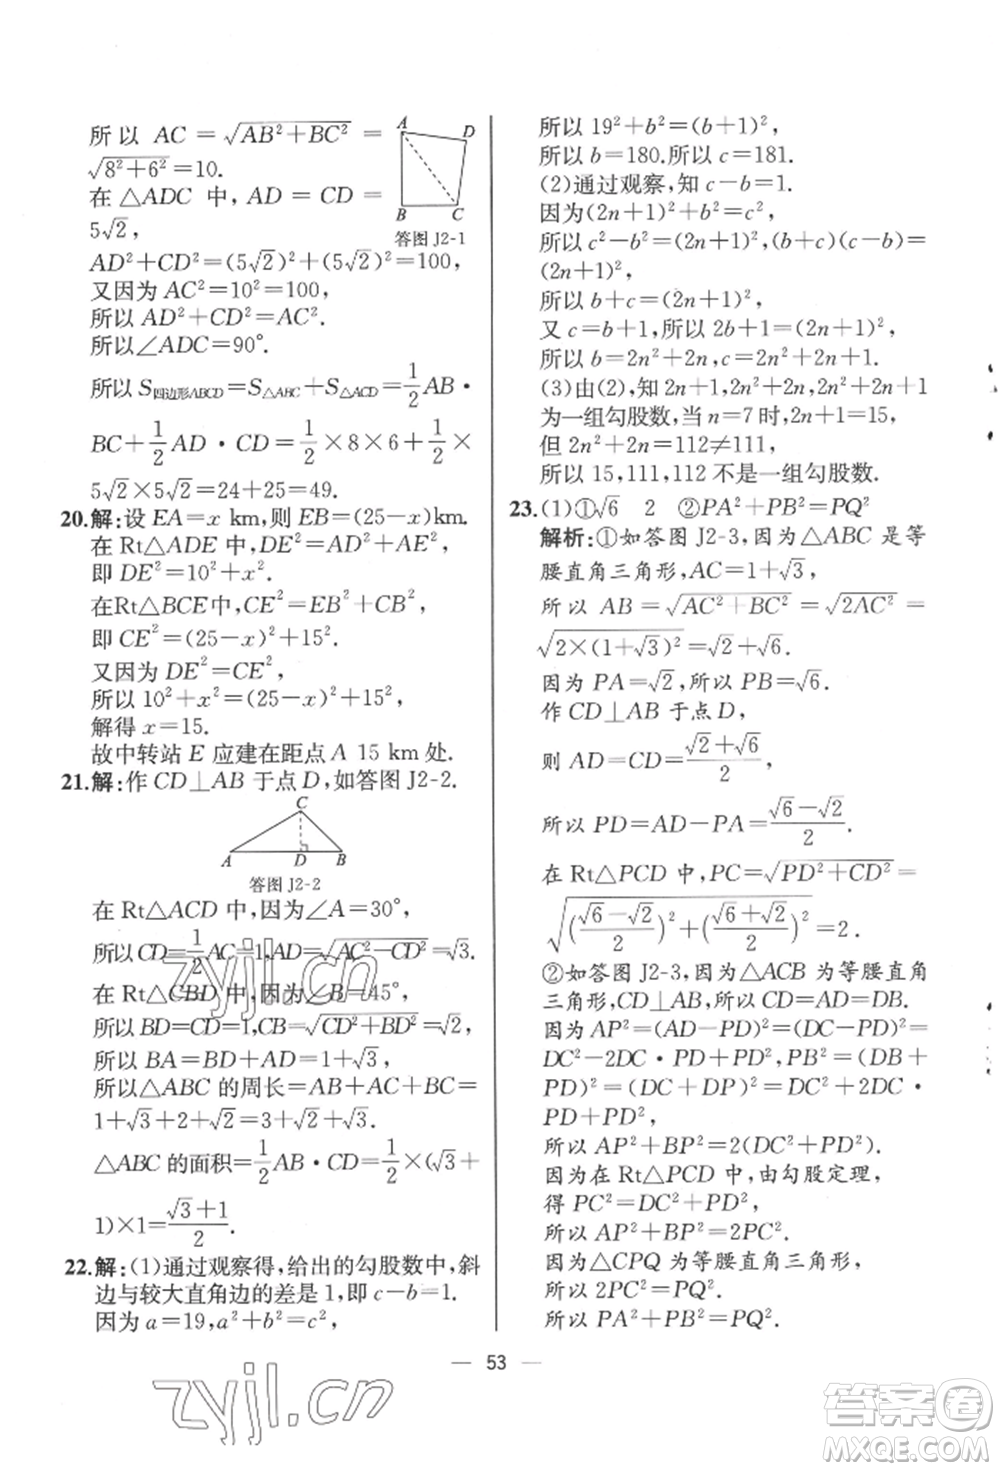 所以 AC=√(AB²+BC²)=
√(8²+6²)=10.
在△ADC 中, AD=CD=
5√2,
A
D
B
C
答图 J2-1
AD²+CD²=(5√2)²+(5√2)²=100,
又因为 AC²=10²=100,
所以 AD²+CD²=AC².
所以∠ADC=90°.
所以 S四边形ABCD=S△ABC+S△ACD=1/2 AB·
BC+1/2 AD·CD=1/2×8×6+1/2×
5√2×5√2=24+25=49.
20.解:设 EA=x km,则 EB=(25-x)km.
在 Rt△ADE 中,DE²=AD²+AE²,
即 DE²=10²+x².
在Rt△BCE中,CE²=EB²+CB²,
即 CE²=(25-x)²+15².
又因为 DE²=CE²,
所以 10²+x²=(25-x)²+15²,
解得 x=15.
故中转站 E 应建在距点 A 15 km处.
21.解:作 CD⊥AB 于点 D,如答图J2-2.
C
A
D
B
答图 J2-2
在 Rt△ACD 中,因为∠A=30°,
所以CD=1/2 AC=1,AD=√(AC²-CD²)=√3.
在 Rt△CBD 中,因为∠B=45°,
所以 BD=CD=1,CB=√(CD²+BD²)=√2,
所以 BA=BD+AD=1+√3,
所以△ABC 的周长=AB+AC+BC=
1+√3+2+√2=3+√3+√2.
△ABC 的面积=1/2 AB·CD=1/2×(√3+
1)×1=(√3+1)/2.
22.解:(1)通过观察得,给出的勾股数中,斜
边与较大直角边的差是 1,即 c-b=1.
因为 a=19,a²+b²=c²,
所以 19²+b²=(b+1)²,
所以 b=180.所以 c=181.
(2)通过观察,知 c-b=1.
因为(2n+1)²+b²=c²,
所以 c²-b²=(2n+1)²,(b+c)(c-b)=
(2n+1)²,
所以 b+c=(2n+1)²,
又 c=b+1,所以 2b+1=(2n+1)²,
所以 b=2n²+2n,c=2n²+2n+1.
(3)由(2),知 2n+1,2n²+2n,2n²+2n+1
为一组勾股数,当 n=7 时,2n+1=15,
但 2n²+2n=112≠111,
所以 15,111,112 不是一组勾股数.
23.(1)①√6 2 ②PA²+PB²=PQ²
解析:①如答图 J2-3,因为△ABC 是等
腰直角三角形,AC=1+√3,
所以 AB=√(AC²+BC²)=√(2AC²)=
√(2×(1+√3)²)=√2+√6.
因为 PA=√2,所以 PB=√6.
作 CD⊥AB 于点 D,
则 AD=CD=(√2+√6)/2,
所以 PD=AD-PA=(√6-√2)/2.
在 Rt△PCD 中,PC=√(PD²+CD²)=
√(((√6-√2)/2)²+((√6+√2)/2)²)=2.
②如答图 J2-3,因为△ACB为等腰直角
三角形,CD⊥AB,所以CD=AD=DB.
因为 AP²=(AD-PD)²=(DC-PD)²=
DC²-2DC·PD+PD²,PB²=(DB+
PD)²=(DC+PD)²=DC²+2DC·
PD+PD²,
所以 AP²+BP²=2(DC²+PD²).
因为在 Rt△PCD 中,由勾股定理,
得 PC²=DC²+PD²,
所以 AP²+BP²=2PC².
因为△CPQ 为等腰直角三角形,
所以 2PC²=PQ².
所以 PA²+PB²=PQ².
— 53 —
zyjl.cn
zyjl.cn
答案圈
MXQE.COM